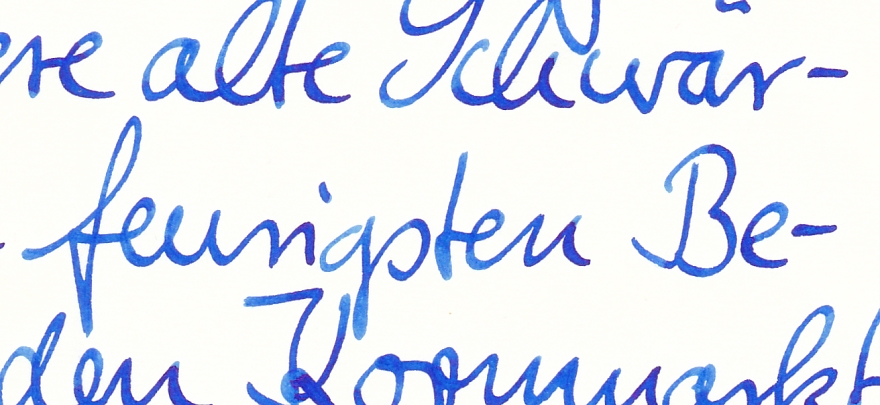 ere alte Schwär-
feurigsten Be-
den Kornmarkt